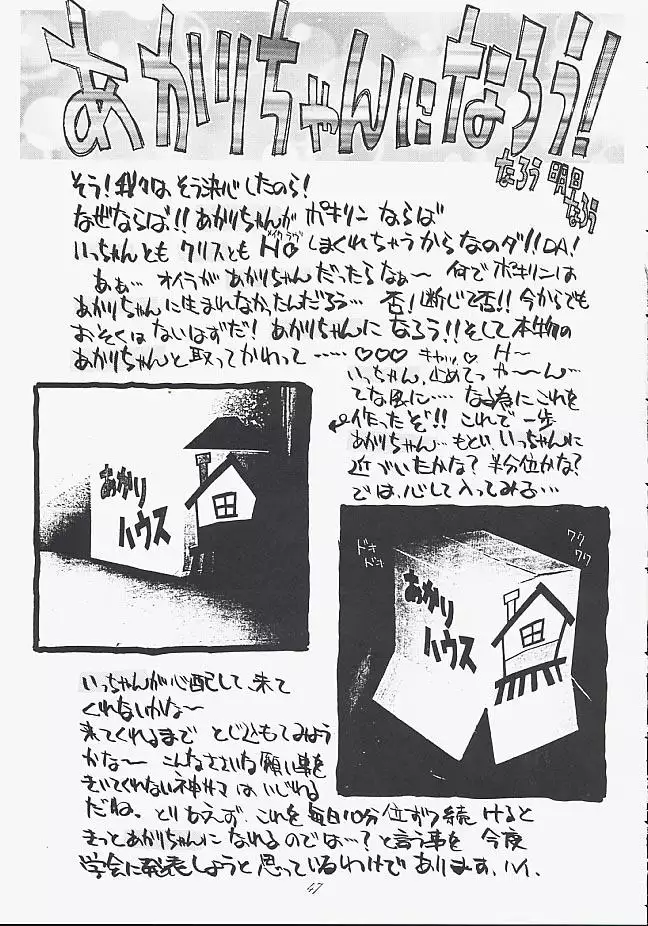 あかりちゃんになろう!
なろう 明日
なろう
そう!我々は、そう決心したのら!
なぜならば!!あかりちゃんが ポキリン ならば
いっちゃんとも クリスとも H しまくれちゃうからなのダ!!DA!
あぁ… オイラが あかりちゃん だったらなぁ〜 何で ポキリンは
あかりちゃんに生まれなかったんだろう… 否!断じて否!! 今からでも
おそくは ないはずだ! あかりちゃんに なろう!!そして本物の
あかりちゃんと取ってかわって …… ♡♡♡ キャッ ♡ H〜
いっちゃん、止めてっ か〜〜ん…
てな風に… なる為にこれを
作ったぞ!! これで一歩
あかりちゃん… もとい いっちゃんに
近づいたかな? 半分位かな?
では、心して入ってみる…
あかり
ハウス
ドキ
ドキ
ワク
ワク
あかり
ハウス
いっちゃんが心配して、来て
くれないかな〜
来てくれるまで とじ込もてみよう
かな〜 こんなささいな願い事を
きいてくれない神サマ は、いじわる
だね。 とりあえず、これを 毎日10分 位ずつ続 けると
きっとあかりちゃんに なれる のでは…? と言う事を 今度
学会に発表しようと 思っているわけで あります、ハイ、
47